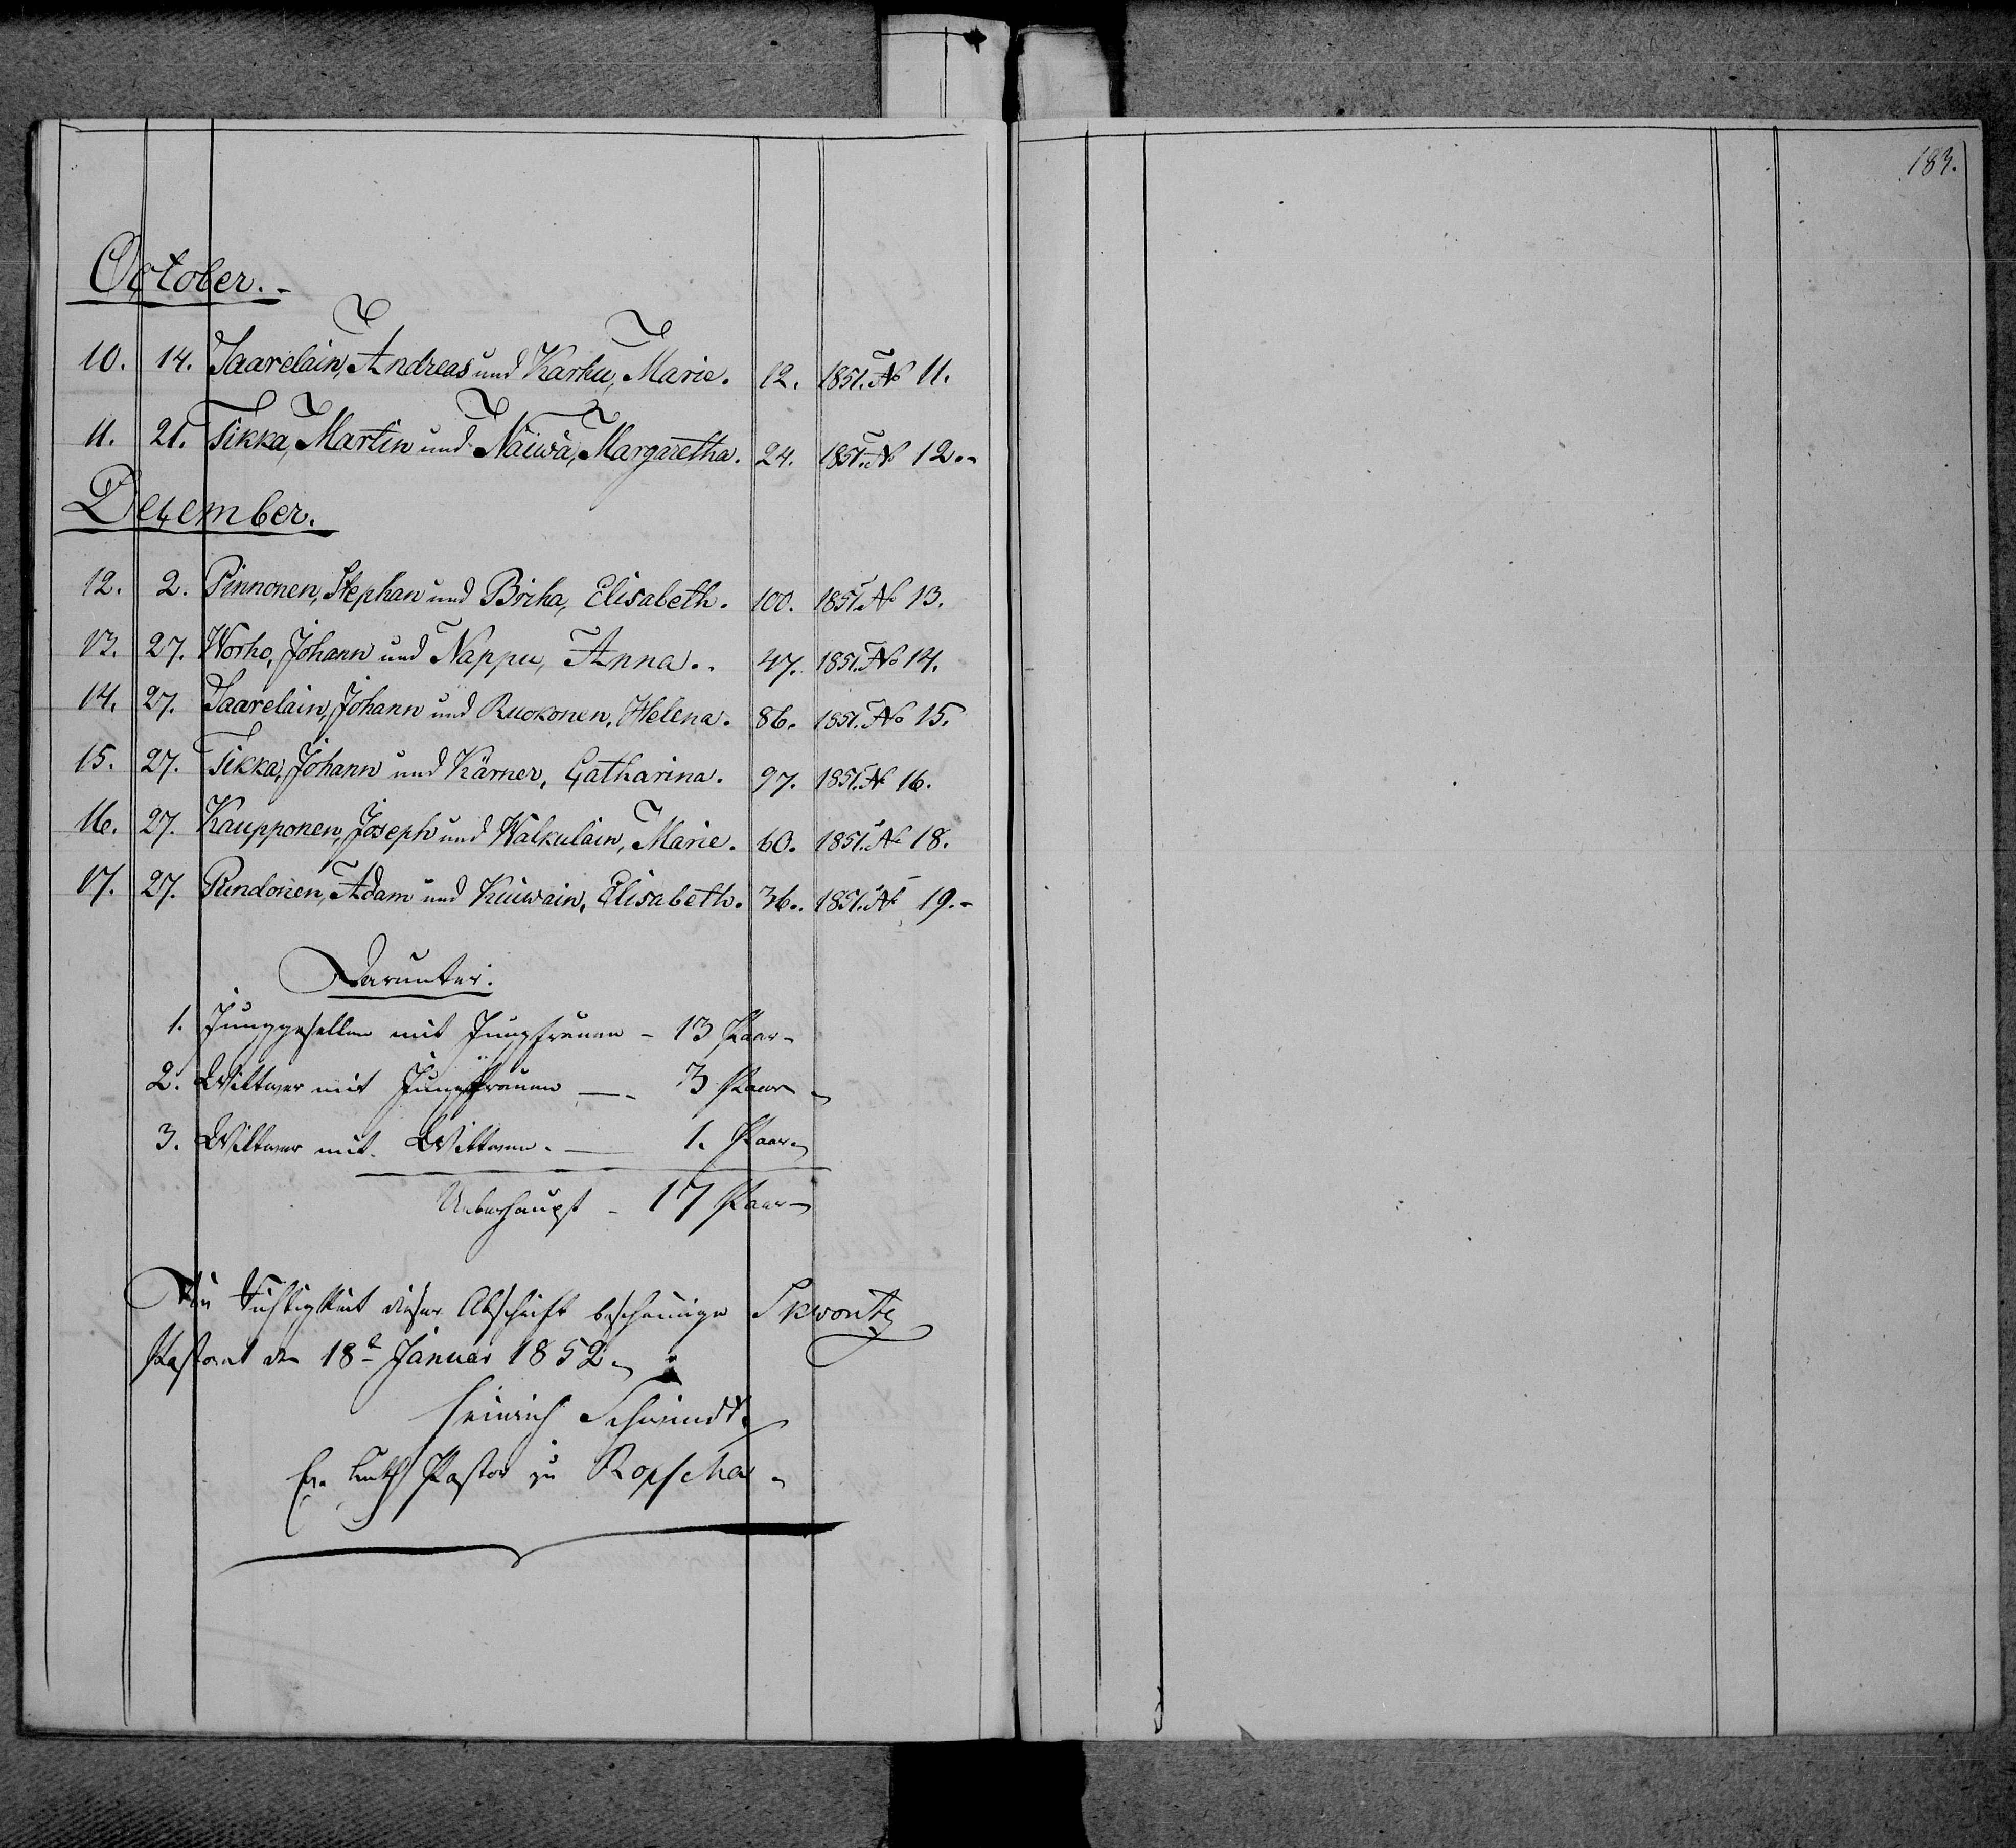 183.
October.-
10. 14. Saarelain, Andreas und Karhu, Marie. 12. 1851. No 11.
11. 21. Tikka, Martin und Näiwä, Margaretha. 24. 1851. No 12.-
December.
12. 2. Pinnonen, Stephan und Briha, Elisabeth. 100. 1851. No 13.
13. 27. Worho, Johann und Nappu, Anna.. 47. 1851. No 14.
14. 27. Saarelain, Johann und Ruokonen, Helena. 86. 1851. No 15.
15. 27. Tikka, Johann und Kärner, Catharina. 97. 1851. No 16.
16. 27. Kaupponen, Joseph und Walkulain, Marie. 60. 1851. No 18.
17. 27. Pundonen, Adam und Kuiwain, Elisabeth. 36.. 1851. No 19.-
Darunter:
1. Junggesellen mit Jungfrauen - 13 Paar-
2. Wittwer mit Jungfrauen — 3 Paar-
3. Wittwer mit Wittwen. — 1. Paar-
Ueberhaupt - 17 Paar-
Die Richtigkeit dieser Abschrift bescheinige Skworitz
Pastorat den 18t Januar 1852.
Heinrich Schwindt.
Ev. Luth Pastor zu Ropscha.